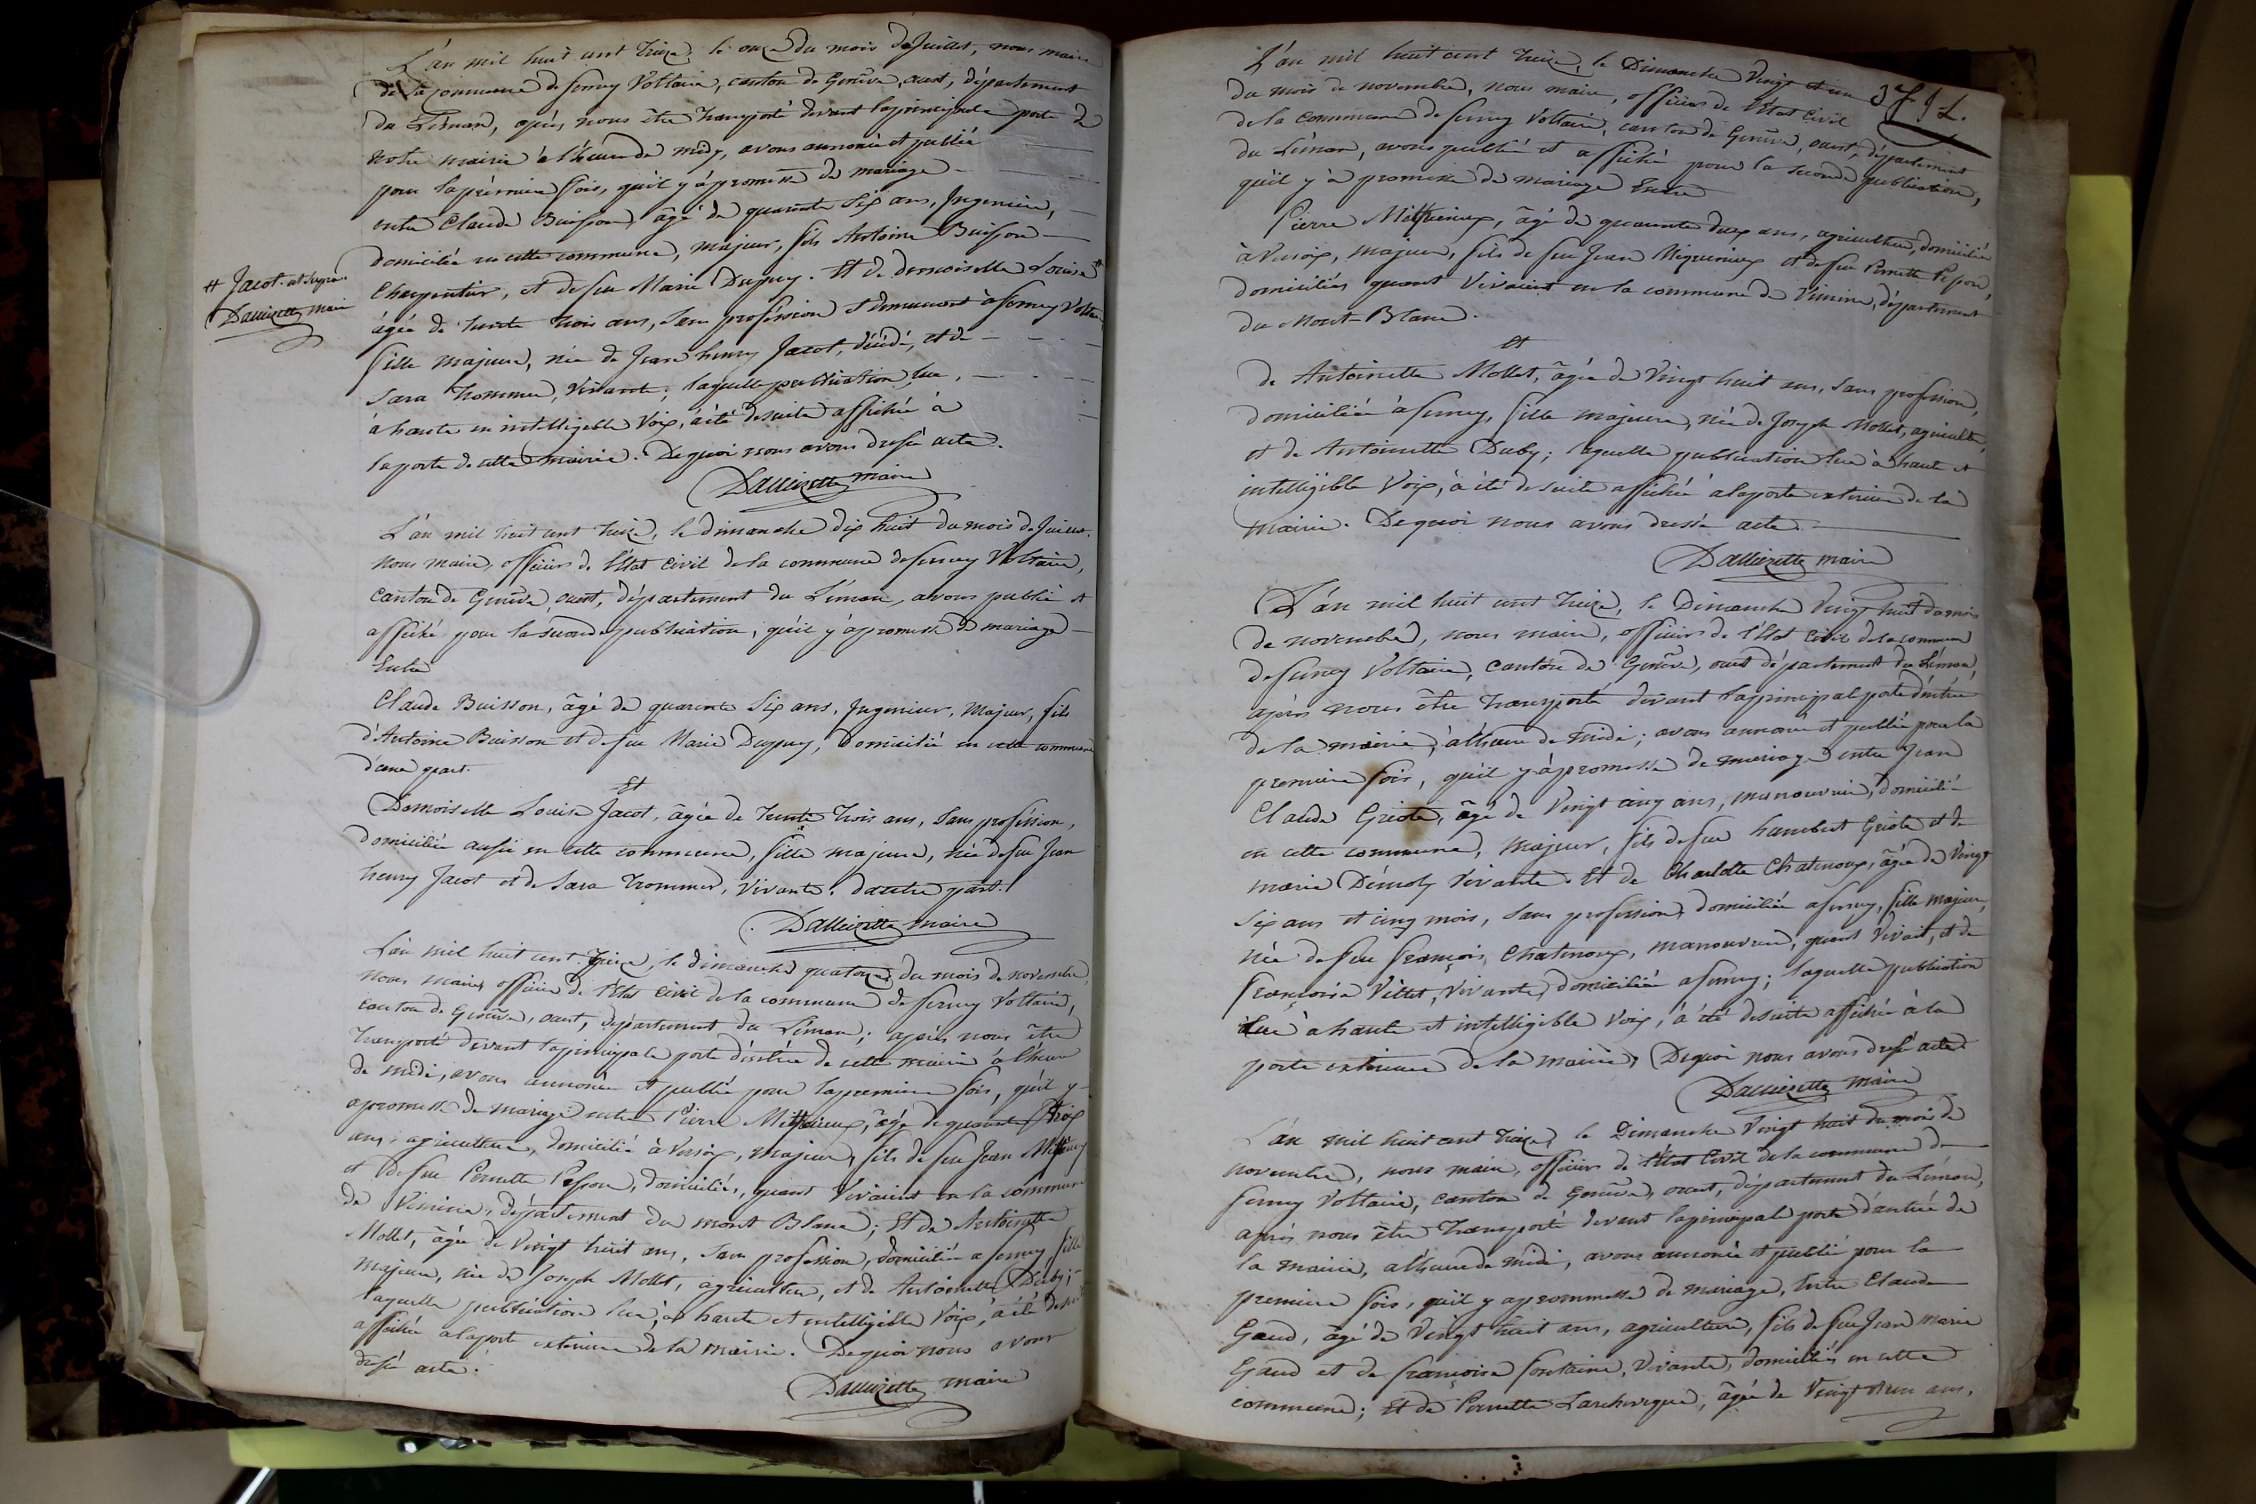 L'an mil huit cent treize, le onze du mois de Juillet, nous maire
de la commune de ferney Voltaire, canton de Genêve, ouest, département
du Léman, après nous être transporté devant la principale porte de
notre mairie à l'heure de midy, avons annoncé et publié
pour la première fois, qu'il y à promesse de mariage
entre Claude Buisson, âgé de quarante Six ans, Ingenieur,
domicilié en cette commune, majeur, fils Antoine Buisson
Charpentier, et de feu Marie Dupuy. Et de demoiselle Louise #
# Jacot
Dallizette maire
âgée de trente trois ans, sans profession demeurant à ferney Voltaire
fille majeure, née de Jean henry Jacot, décédé, et de
Sara Trommer, vivante; laquelle publication lue,
à haute en intelligible Voix, a été desuite affichée à
la porte de cette Mairie. De quoi nous avons dressé acte.
Dallizette maire
L'an mil huit cent treize, le dimanche dix huit du mois de Juillet.
Nous maire, officier de l'état civil de la commune de ferney Voltaire,
Canton de Genêve, ouest, département du Léman, avons publié et
affiché pour la seconde publication, qu'il y à promesse de mariage
Entre
Claude Buisson, âgé de quarante Six ans, Ingenieur, Majeur, fils
d'Antoine Buisson et de feu Marie Dupuy, domicilié en cette commune
d'une part.
Et
Demoiselle Louise Jacot, âgée de trente trois ans, Sans profession,
domiciliée aussi en cette commune, fille majeure, née de feu Jean
henry Jacot et de Sara Trommer, vivante. dautre part.
Dallizette maire
L'an mil huit cent treize, le dimanche quatorze du mois de novembre
nous maire, officier de l'Etat civil de la commune de ferney Voltaire,
canton de Genêve, ouest, département du Léman; après nous être
transporté devant la principale porte d'entrée de cette mairie à l'heure
de midi, avons annoncé et publié pour la premiere fois, qu'il y
a promesse de mariage entre Pierre âgé de quarante
ans, agriculteur, domicilié à Versoix, majeur, fils de feu Jean
et de feu Pernette Pepon, domiciliés, quant Vivaient en la commune
de Vimine, département du mont Blanc; Et de Antoinette
Mollet, âgée de Vingt huit ans, sans profession, domiciliée a ferney, fille
majeure, née de Joseph Mollet, agriculteur, et de Antoinette Duby;
laquelle publication lue, à haute et intelligible Voix, a été desuite
affichée a la porte exterieure de la mairie. De quoi nous avons
dressé acte.
Dallizette maire
L'an mil huit cent treize, le Dimanche Vingt et un
du mois de novembre, nous maire, officier de l'état Civil
de la commune de ferney Voltaire, canton de Genêve, ouest, département
du Léman, avons publié et affiché pour la seconde publication,
qu'il y à promesse de mariage Entre
Pierre âgé de quarante deux ans, agriculteur, domicilié
à Versoix, majeur, fils de feu Jean et de feu Pernette Pepon,
domiciliés quant Vivaient en la commune de Vimine, département
du Mont-Blanc.
et
de Antoinette Mollet, âgée de Vingt huit ans, Sans profession,
domiciliée à ferney, fille majeure, née de Joseph Mollet, agriculteur,
et de Antoinette Duby; laquelle publication lue à haute et
intelligible Voix, à été desuite affichée à la porte exterieure de la
Mairie. De quoi nous avons dressé acte.
Dallizette maire
L'an mil huit cent treize, le Dimanche Vingt huit du mois
de novembre, nous maire, officier de l'état Civil de la commune
de ferney Voltaire, canton de Genêve, ouest département du Léman,
après nous être transporté devant la principal porte d'entrée
de la mairie, à l'heure de midi; avons annoncé et publié pour la
premiere fois, qu'il y à promesse de mariage entre Jean
Claude Griote, âgé de Vingt cinq ans, manouvrier, domicilié
en cette commune, majeur, fils de feu humbert Griote et de
marie Démoly Vivante. Et de Charlotte Chatenoux, âgée de Vingt
Six ans et cinq mois, sans profession, domiciliée a ferney, fille majeure,
née de feu françois Chatenoux, manouvrier, quant Vivait, et de
françoise Villet, Vivante, domiciliée a ferney; laquelle publication
lue à haute et intelligible Voix, à été desuite affichée à la
porte exterieure de la mairie, De quoi nous avons dressé acte.
Dallizette maire
L'an mil huit cent treize, le Dimanche Vingt huit du mois de
novembre, nous maire, officier de l'état Civil de la commune de
ferney Voltaire, canton de Genêve, ouest, département du Léman,
après nous être transporté devant la principale porte d'entrée de
la mairie, a l'heure de midi, avons annoncé et publié pour la
premiere fois, qu'il y a promesse de mariage, Entre Claude
Gaud, âgé de Vingt huit ans, agriculteur, fils de feu Jean Marie
Gaud et de françoise fontaine, Vivante, domiciliés en cette
commune; Et de Pernette Larcheveque, âgée de Vingt un ans.